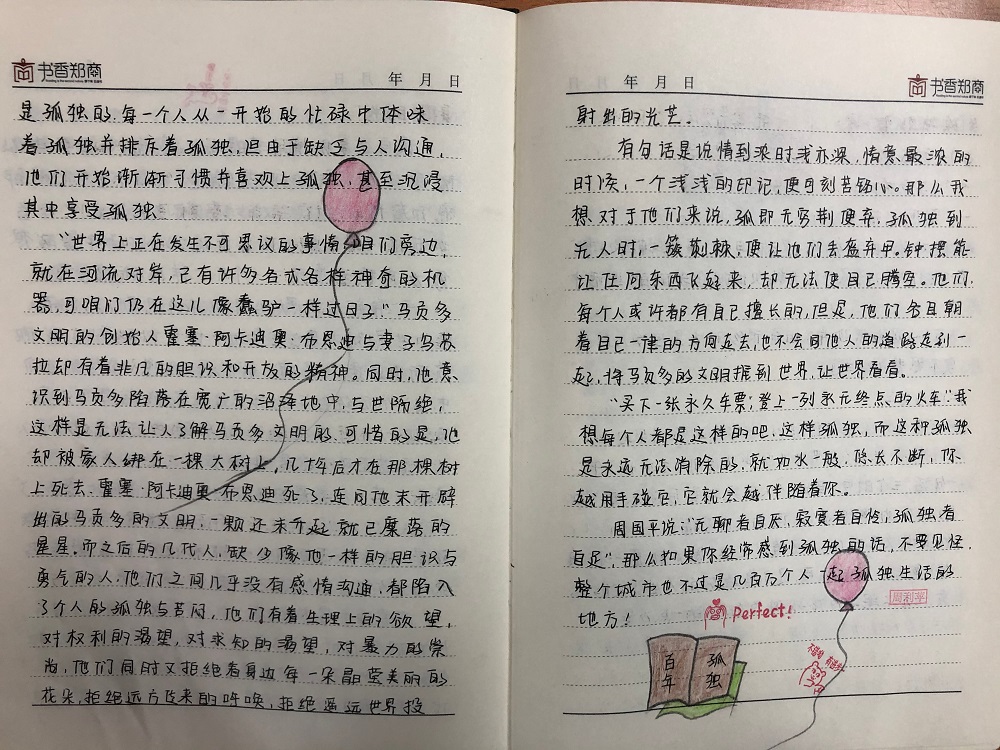 书香郑商
年 月 日
是孤独的,每一个人从一开始的忙碌中体味
着孤独并排斥着孤独,但由于缺乏与人沟通,
他们开始渐渐习惯并喜欢上孤独,甚至沉浸
其中享受孤独
“世界上正在发生不可思议的事情,咱们旁边,
就在河流对岸,已有许多各式各样神奇的机
器,可咱们仍在这儿像蠢驴一样过日子”马贡多
文明的创始人霍塞·阿卡迪奥·布恩迪与妻子乌苏
拉却有着非凡的胆识和开放的精神。同时,他意
识到马贡多陷落在宽广的沼泽地中,与世隔绝,
这样是无法让人了解马贡多文明的,可惜的是,他
却被家人绑在一棵大树上,几十年后才在那棵树
上死去,霍塞·阿卡迪奥·布恩迪死了,连同他未开辟
出的马贡多的文明,一颗还未升起就已陨落的
星星。而之后的几代人,缺少像他一样的胆识与
勇气的人,他们之间几乎没有感情沟通,都陷入
了个人的孤独与苦闷,他们有着生理上的欲望,
对权利的渴望,对求知的渴望,对暴力的崇
尚,他们同时又拒绝着身边每一朵晶莹美丽的
花朵,拒绝远方飞来的呼唤,拒绝遥远世界投
书香郑商
年 月 日
射出的光芒。
有句话是说情到浓时浅亦深,情意最浓的
时候,一个浅浅的印记,便可刻苦铭心。那么我
想对于他们来说,孤即无穷荆便弃,孤独到
无人时,一簇荆棘,便让他们丢盔弃甲。钟摆能
让任何东西飞起来,却无法使自己腾空。他们,
每个人或许都有自己擅长的,但是,他们各自朝
着自己一律的方向走去,也不会同他人的道路走到一
起,将马贡多的文明摆到世界,让世界看看。
“买下一张永久车票,登上一列永无终点的火车”我
想每个人都是这样的吧,这样孤独,而这种孤独
是永远无法消除的,就如水一般,悠长不断,你
越用手碰它,它就会越伴随着你。
周国平说:“无聊者自厌,寂寞者自怜,孤独者
自足”,那么如果你经常感到孤独的话,不要见怪,
整个城市也不过是几百万个人一起孤独生活的
地方!
Perfect!
百年
孤独